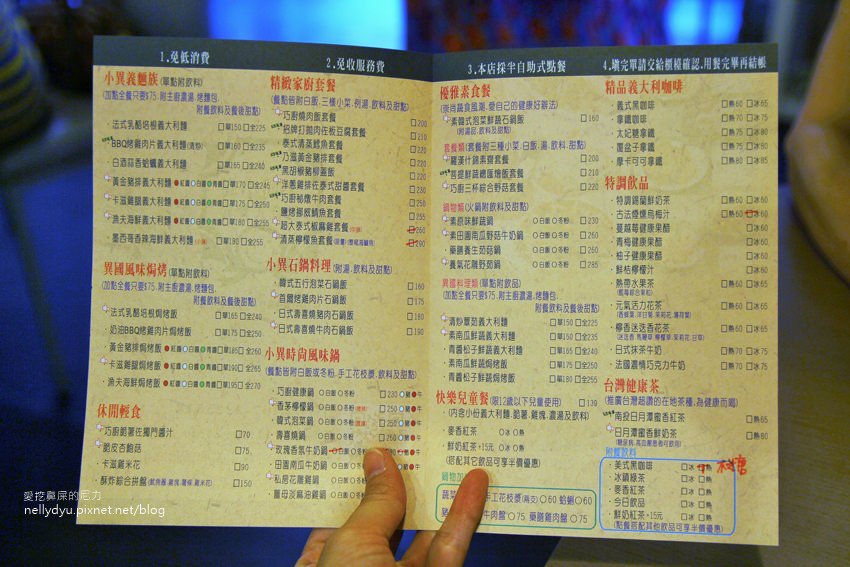 1.免低消費
2.免收服務費
3.本店採半自助式點餐
4.填完單請交給櫃檯確認.用餐完畢再結帳
小異義麵族(單點附飲料)
(加點全餐只要$75.附主廚濃湯.烤麵包.
附餐飲料及餐後甜點)
法式乳酪培根義大利麵 □單150 □全225
BBQ烤雞肉片義大利麵(青椒) □單165 □全240
白酒蒜香蛤蠣義大利麵 □單165 □全240
黃金豬排義大利麵 紅醬 白醬 青醬 □單170 □全245
卡滋雞腿義大利麵 紅醬 白醬 青醬 □單180 □全255
漁夫海鮮義大利麵 紅醬 白醬 青醬 □單180 □全255
墨西哥香辣海鮮義大利麵(小辣) □單190 □全265
異國風味焗烤(單點附飲料)
(加點全餐只要$75.附主廚濃湯.烤麵包.
附餐飲料及餐後甜點)
法式乳酪培根焗烤飯 □單165 □全240
奶油BBQ烤雞肉片焗烤飯 □單175 □全250
黃金豬排焗烤飯 紅醬 白醬 青醬 □單185 □全260
卡滋雞腿焗烤飯 紅醬 白醬 青醬 □單190 □全265
漁夫海鮮焗烤飯 紅醬 白醬 青醬 □單195 □全270
休閒輕食
巧廚脆薯佐獨門醬汁 □70
脆皮杏鮑菇 □75
卡滋雞米花 □90
酥炸綜合拼盤 □150
精緻家廚套餐
(餐點皆附白飯.三樣小菜.例湯.飲料及甜點)
巧廚燒肉飯套餐 □200
招牌打拋肉佐板豆腐套餐 □210
泰式清蒸鱈魚套餐 □220
巧滋黃金豬排套餐 □220
黑胡椒豬柳蓋飯 □220
洋蔥雞排佐泰式甜醬套餐 □230
巧廚秘燉牛肉套餐 □250
鹽烤挪威鯖魚套餐 □255
超大泰式椒麻雞套餐 □260
清蒸檸檬魚套餐 □290
小異石鍋料理(附湯.飲料及甜點)
韓式五行泡菜石鍋飯 □160
首爾烤雞肉片石鍋飯 □175
日式壽喜燒豬肉石鍋飯 □180
日式壽喜燒牛肉石鍋飯 □190
小異時尚風味鍋
(餐點皆附白飯或冬粉.手工花枝漿.飲料及甜點)
巧廚健康鍋 ○白飯 ○冬粉 □230 豬 牛
香茅檸檬鍋 ○白飯 ○冬粉 □250 豬 牛
韓式泡菜鍋 ○白飯 ○冬粉 □250 豬 牛
壽喜燒鍋 ○白飯 ○冬粉 □260 豬 牛
玫瑰香氛牛奶鍋 ○白飯 ○冬粉
田園南瓜牛奶鍋 ○白飯 ○冬粉
私房花雕雞鍋 ○白飯 ○冬粉
薑母淡麻油雞鍋 ○白飯 ○冬粉
優雅素食餐
(崇尚蔬食風潮.愛自己的健康好辦法)
素韓式泡菜鮮蔬石鍋飯 □160
(附湯品.飲料及甜點)
套餐類(套餐附三種小菜.白飯.湯.飲料.甜點)
羅漢什錦素齋套餐 □200
菩提鮮蔬總匯燴飯套餐 □220
巧廚三杯綜合野菇套餐 □220
鍋物類(火鍋附飲料及甜點)
素原味鮮蔬鍋 ○白飯 ○冬粉 □230
素田園南瓜野菇牛奶鍋 ○白飯 ○冬粉 □250
藥膳養生菇菇鍋 ○白飯 ○冬粉 □260
養氣花雕野菇鍋 ○白飯 ○冬粉 □250
異國料理類(單點附飲品)
(加點全餐只要$75.附主廚濃湯.烤麵包.
附餐飲料及餐後甜點)
清炒蕈菇義大利麵 □單150 □全225
素南瓜鮮蔬義大利麵 □單150 □全225
青醬松子鮮蔬義大利麵 □單160 □全235
素南瓜鮮蔬焗烤飯 □單165 □全240
青醬松子鮮蔬焗烤飯 □單175 □全250
快樂兒童餐(限12歲以下兒童使用) □139
(內含小份義大利麵.脆薯.雞塊.濃湯及飲料)
麥香紅茶 ○冰 ○熱
鮮奶紅茶+15元 ○冰 ○熱
(搭配其它飲品可享半價優惠)
鍋物加
蔬菜 手工花枝漿(兩支)○60 蛤蜊○60
豬 牛肉盤○75 藥膳雞肉盤○75
精品義大利咖啡
義式黑咖啡 □熱60 □冰65
拿鐵咖啡 □熱70 □冰75
太妃糖拿鐵 □熱80 □冰85
覆盆子拿鐵 □熱80 □冰85
摩卡可可拿鐵 □熱80 □冰85
特調飲品
特調錫蘭鮮奶茶 □熱60 □冰60
古法煙燻烏梅汁 □熱60 □冰60
蔓越莓健康果醋 □冰60
青梅健康果醋 □冰60
柚子健康果醋 □冰60
鮮桔檸檬汁 □冰60
熱帶水果茶 □熱70 □冰75
元氣活力花茶 □熱70 □冰75
檸香迷迭香花茶 □熱70 □冰75
日式抹茶牛奶 □熱70 □冰75
法國濃情巧克力牛奶 □熱70 □冰75
台灣健康茶
(推廣台灣超讚的在地茶種.為健康而喝)
南投日月潭蜜香紅茶 □熱65
日月潭蜜香鮮奶茶 □熱80
附餐飲料
美式黑咖啡 □冰 □熱
冰鎮綠茶 □冰
麥香紅茶 □冰 □熱
今日飲品 □冰 □熱
鮮奶紅茶+15元 □冰 □熱
(點餐搭配其他飲品可享半價優惠)
愛挖鼻屎的尼力
nellydyu.pixnet.net/blog